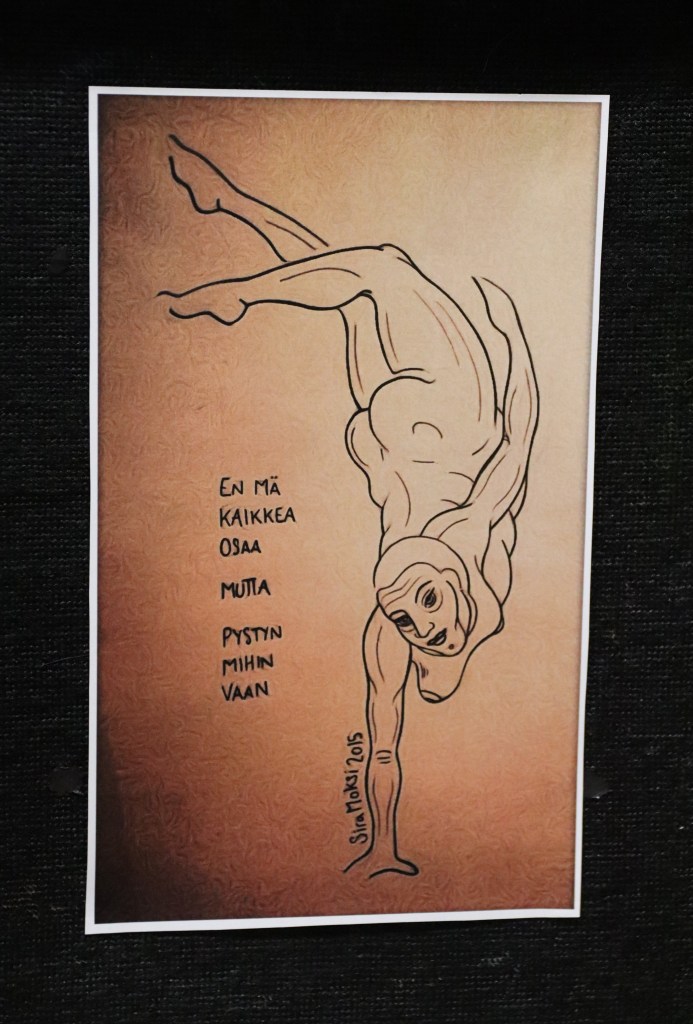 EN MÄ
KAIKKEA
OSAA
MUTTA
PYSTYN
MIHIN
VAAN
Sira Moksi 2015